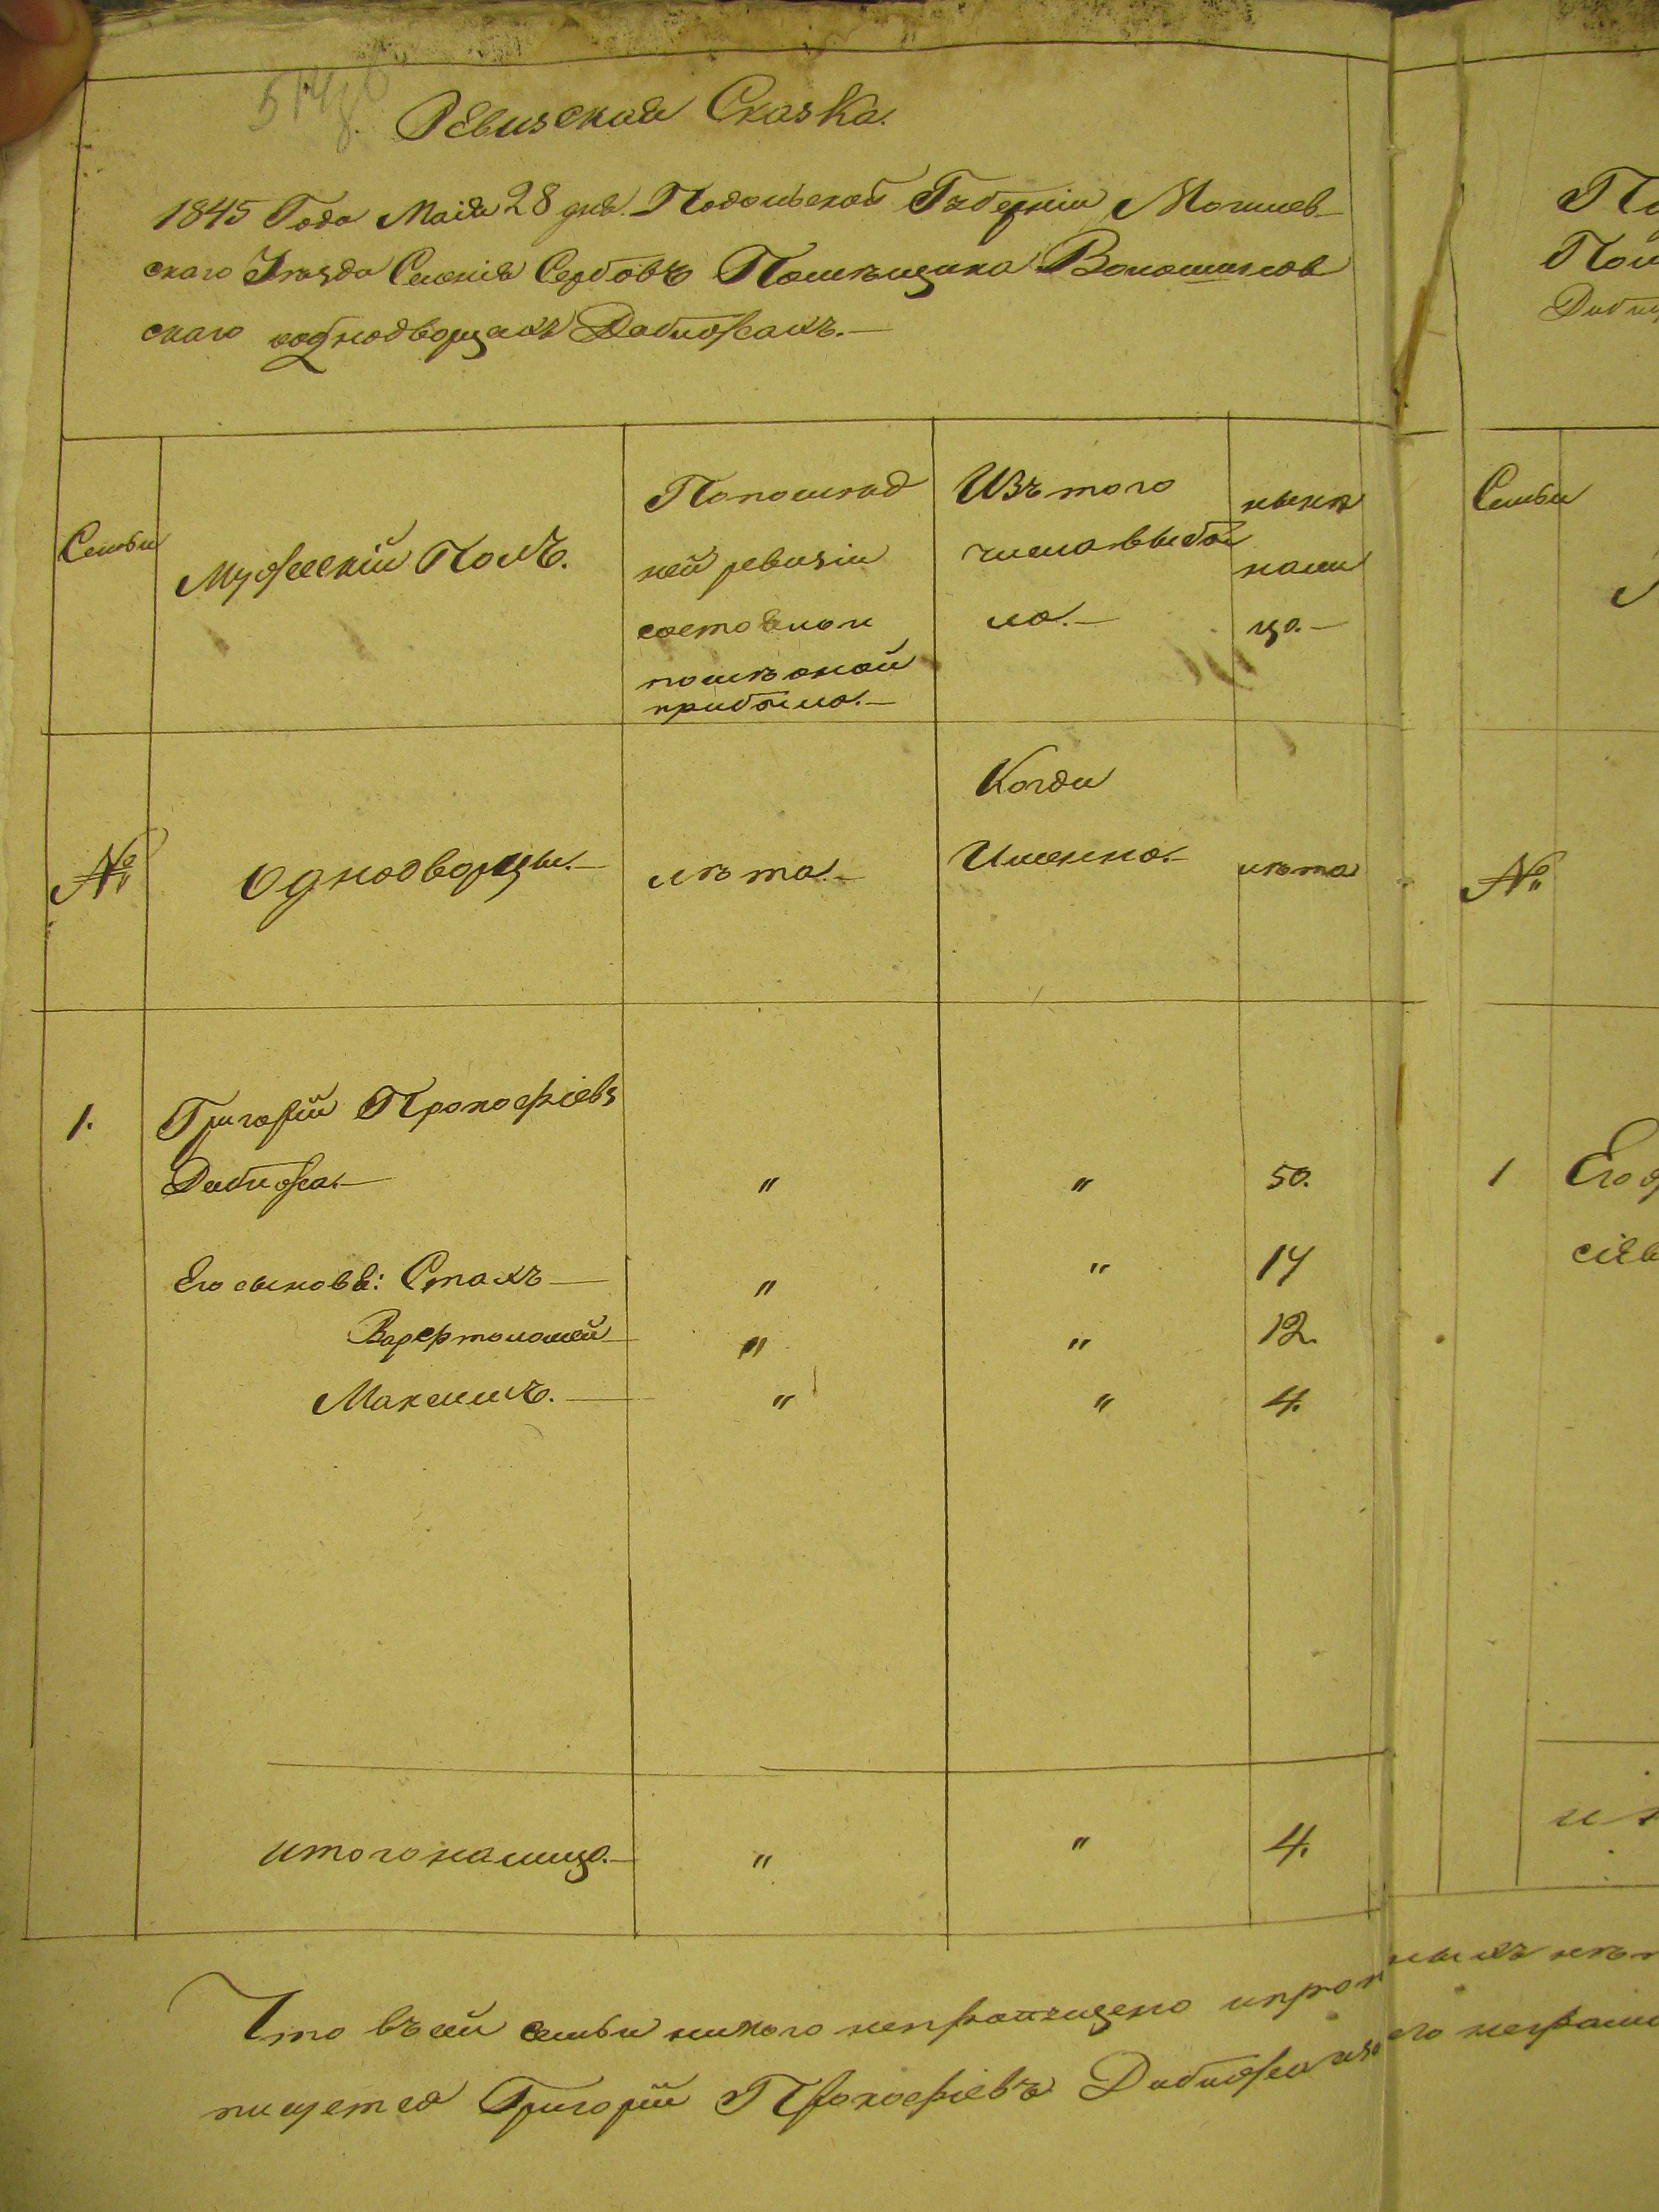 Ревизская Сказка.
1845 Года Маія 28 дня. Подольской Губерніи Могилев-
скаго Уѣзда Селенія Сербовъ Помѣщика Волошинов
скаго о однодворцахъ Дабижахъ.—
Семьи
Мужескій Полъ.
По послѣд
ней ревизіи
состояло и
послѣ оной
прибыло.—
Изъ того
числа выбы
ло.—
нынѣ
нали
цо.—
№
Однодворцы.—
лѣта.—
Когда
Именно.—
лѣта
1. Григорій Прокофіевъ
Дабижа.— " " 50.
Его сыновья: Стахъ — " " 17
Варфтоломей " " 12.
Максимъ. — " " 4.
итого налицо.— " " 4.
Что въ сей семьи никого не пропущено и
пишется Григорій Прокофіевъ Дабижа
Семьи
№
1 Его